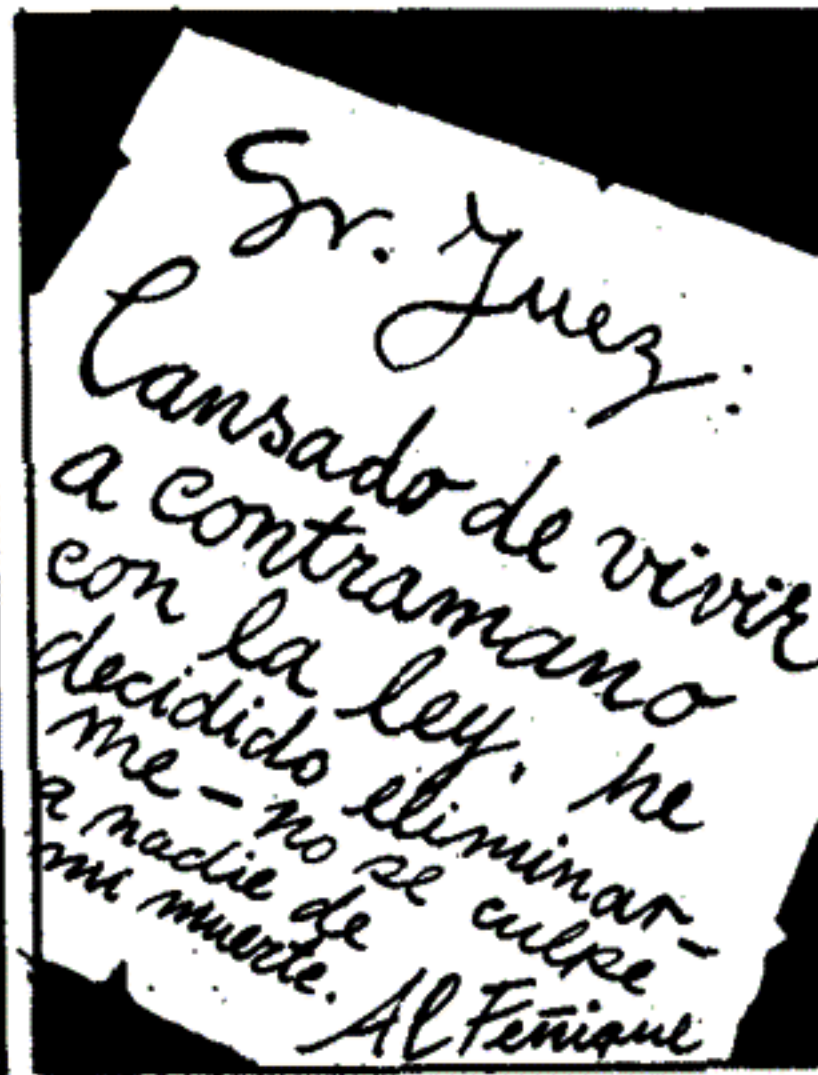 Sr. Juez:
Cansado de vivir
a contramano
con la ley, he
decidido eliminar-
me - no se culpe
a nadie de
mi muerte.
Al Feñique